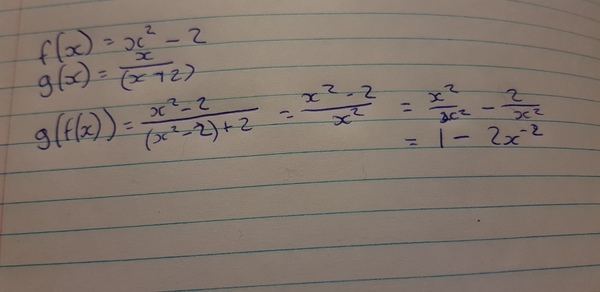 f(x) = x² - 2
g(x) = x/(x+2)
g(f(x)) = (x² - 2)/((x² - 2) + 2) = (x² - 2)/x² = x²/x² - 2/x²
= 1 - 2x⁻²